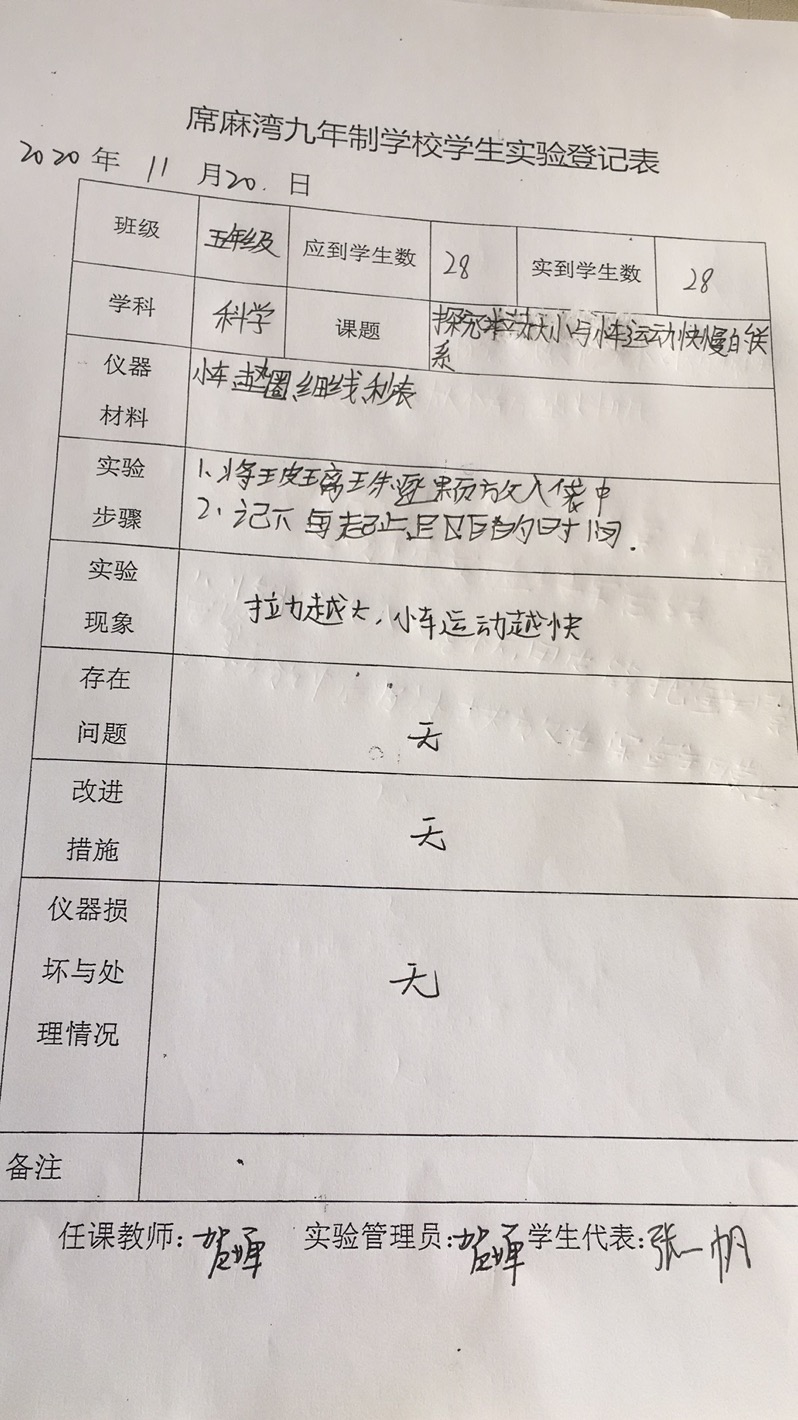 席麻湾九年制学校学生实验登记表
2020年 11 月20.日
班级 五年级 应到学生数 28 实到学生数 28
学科 科学 课题 探究拉力大小与小车运动快慢的关
系
仪器
材料
小车、垫圈、细线、秒表
实验
步骤
1、将玻璃珠逐颗放入袋中
2、记下每起止点区的时间.
实验
现象
拉力越大,小车运动越快
存在
问题
无
改进
措施
无
仪器损
坏与处
理情况
无
备注
任课教师: 实验管理员: 学生代表:张一帆